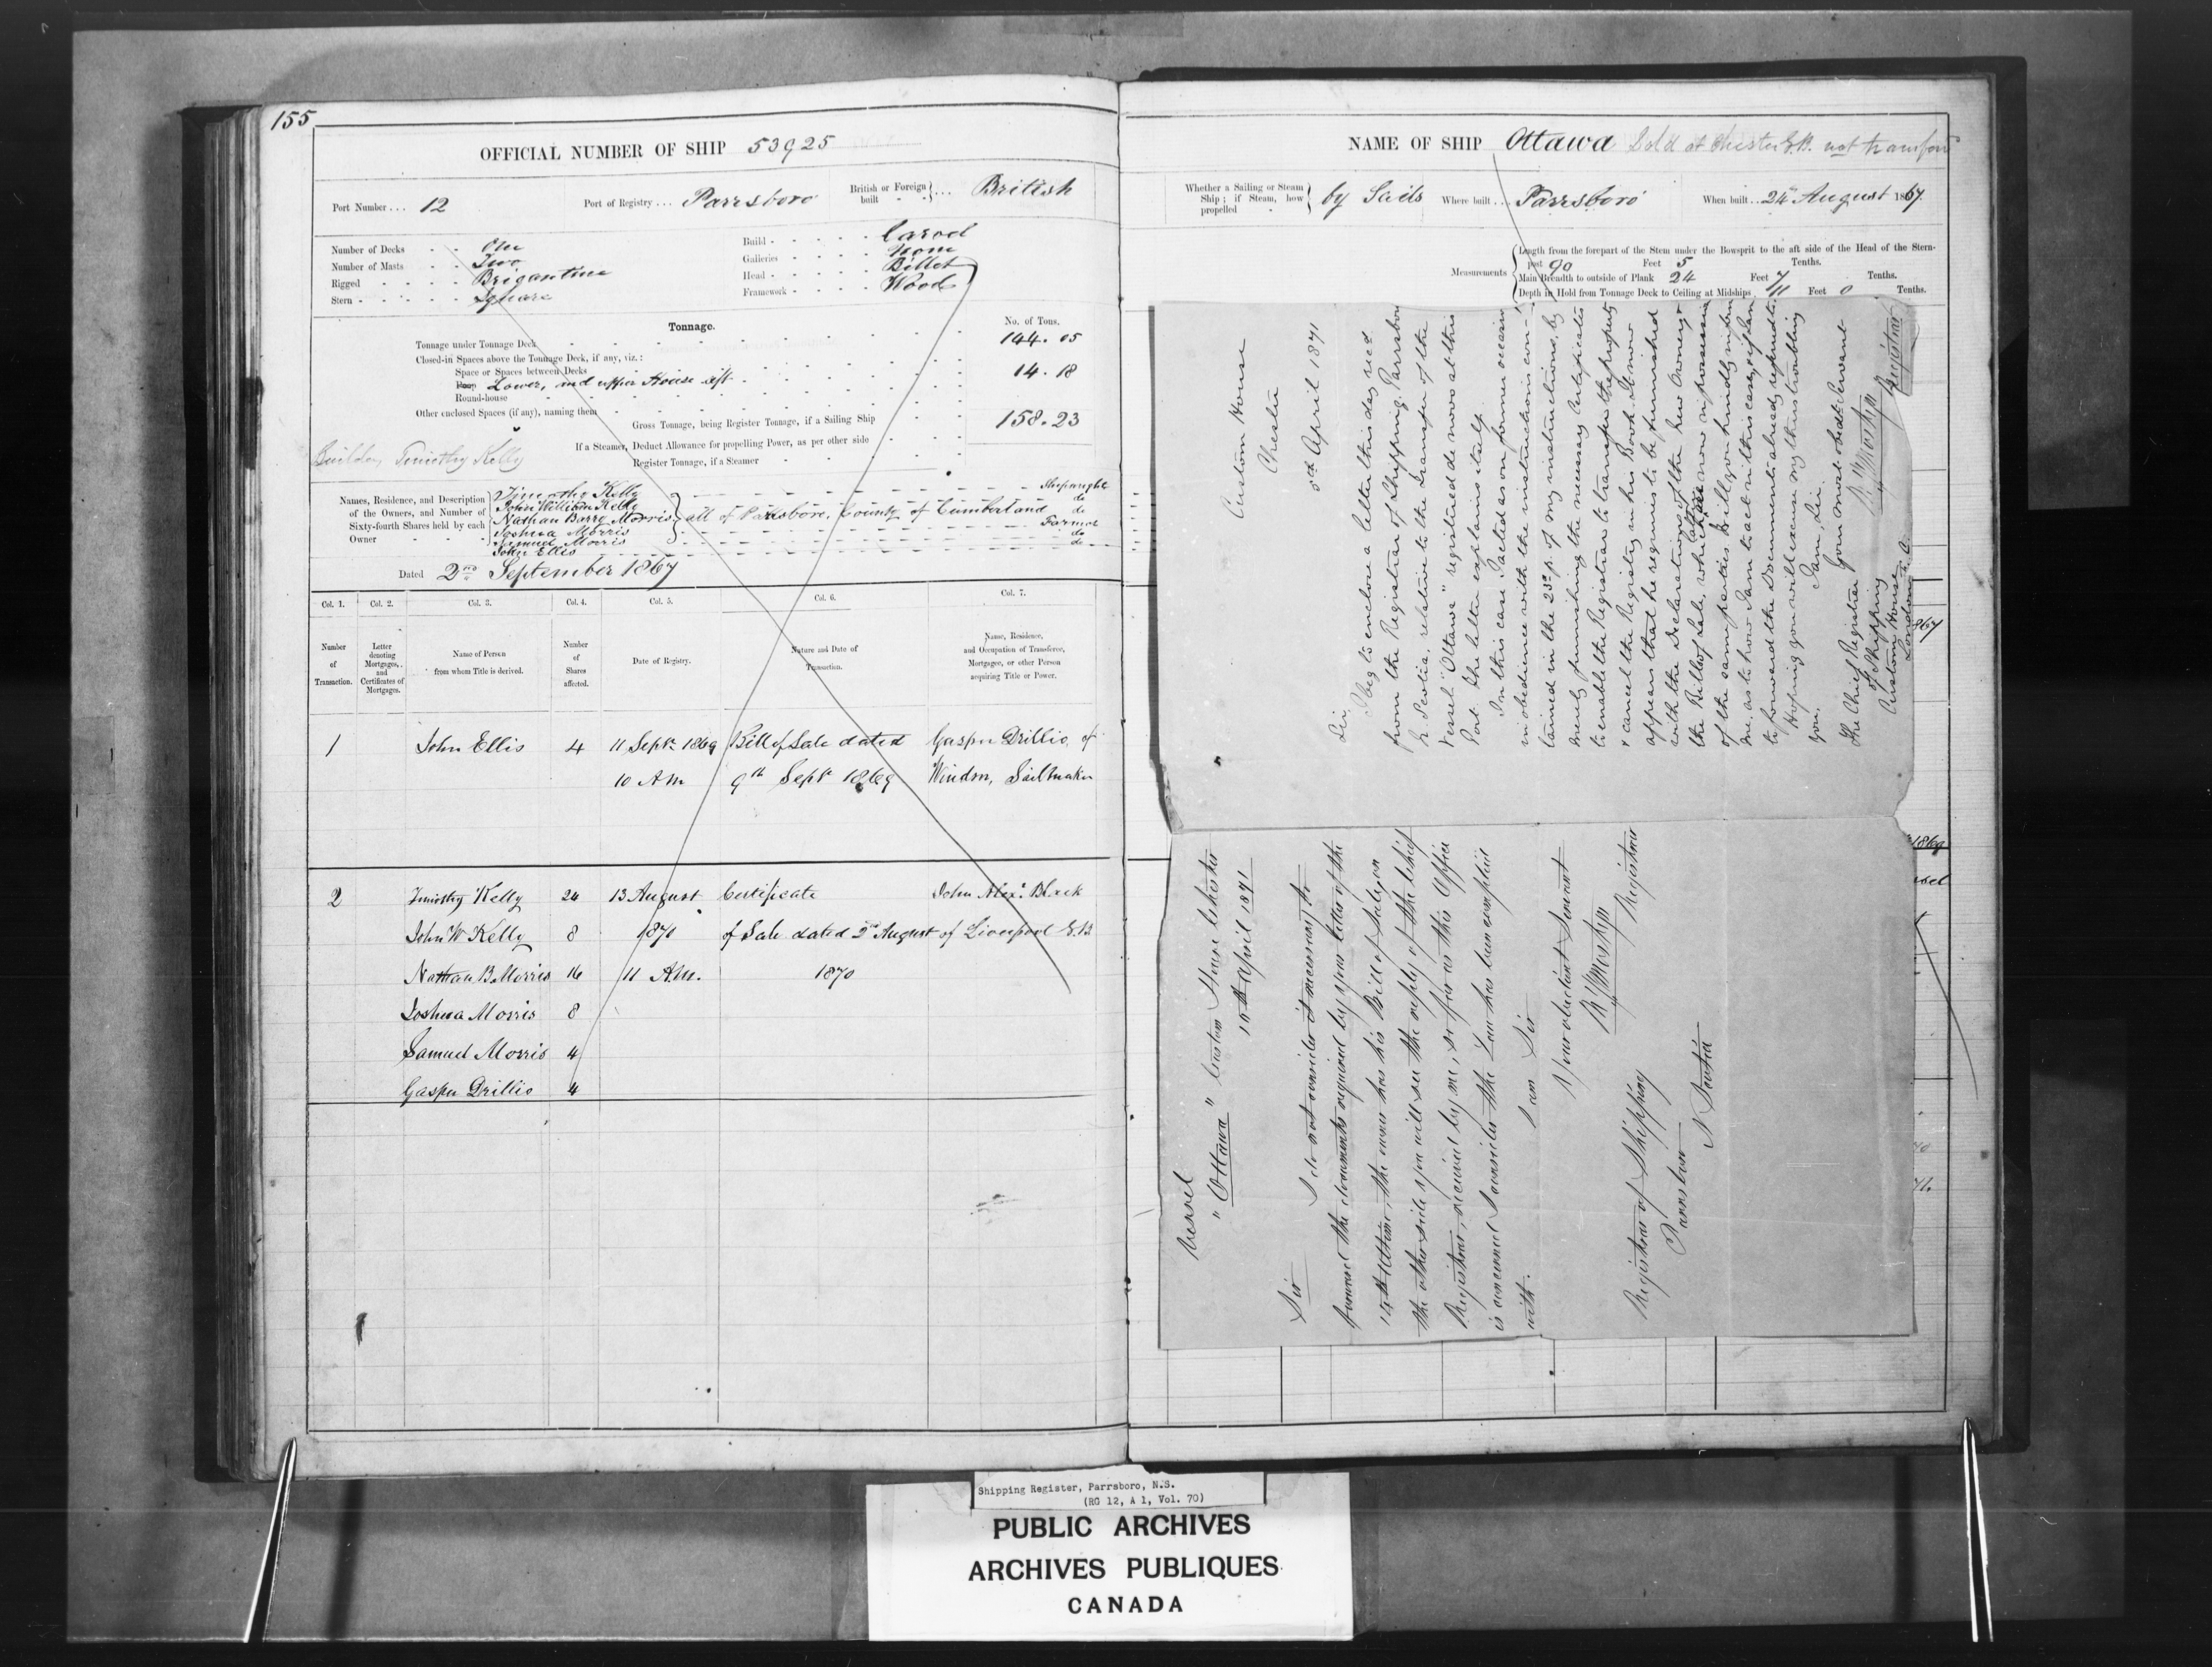 155
OFFICIAL NUMBER OF SHIP 53925
Port Number ... 12 Port of Registry ... Parrsboro British or Foreign built ... British
Number of Decks One
Number of Masts Two
Rigged Brigantine
Stern Square
Build Carvel
Galleries None
Head Billet
Framework Wood
Tonnage. No. of Tons.
Tonnage under Tonnage Deck 144.05
Closed-in Spaces above the Tonnage Deck, if any, viz.:
Space or Spaces between Decks
Poop Lower, and upper House aft 14.18
Round-house
Other enclosed Spaces (if any), naming them
Gross Tonnage, being Register Tonnage, if a Sailing Ship 158.23
If a Steamer, Deduct Allowance for propelling Power, as per other side
Register Tonnage, if a Steamer
Builder, Timothy Kelly
Names, Residence, and Description of the Owners, and Number of Sixty-fourth Shares held by each Owner
Timothy Kelly Shipwright
John William Kelly do
Nathan Barry Morris all of Parrsboro, County of Cumberland do
Joshua Morris Farmer
Samuel Morris do
John Ellis do
Dated 2nd September 1867
Col. 1. Col. 2. Col. 3. Col. 4. Col. 5. Col. 6. Col. 7.
Number of Transaction.
Letter denoting Mortgages, and Certificates of Mortgages.
Name of Person from whom Title is derived.
Number of Shares affected.
Date of Registry.
Nature and Date of Transaction.
Name, Residence, and Occupation of Transferee, Mortgagee, or other Person acquiring Title or Power.
1 John Ellis 4 11 Septr 1869 Bill of Sale dated Gasper Drillio, of
10 AM 9th Septr 1869 Windsor, Sailmaker
2 Timothy Kelly 24 13 August Certificate John Alexr Black
John W Kelly 8 1870 of Sale dated 2nd August of Liverpool G.B
Nathan B Morris 16 11 A.M. 1870
Joshua Morris 8
Samuel Morris 4
Gasper Drillio 4
NAME OF SHIP Ottawa Sold at Chester G.B. not transfer
Whether a Sailing or Steam Ship; if Steam, how propelled by Sails Where built ... Parrsboro When built .. 24th August 1867.
Measurements
Length from the forepart of the Stem under the Bowsprit to the aft side of the Head of the Stern-
post 90 Feet 5 Tenths.
Main Breadth to outside of Plank 24 Feet 7 Tenths.
Depth in Hold from Tonnage Deck to Ceiling at Midships 11 Feet 0 Tenths.
Custom House
Chester
5th April 1871
Sir,
I beg to enclose a letter this day recd
from the Registrar of Shipping, Parrsboro
N. Scotia, relative to the transfer of the
Vessel "Ottawa" registered de novo at this
Port. The letter explains itself.
In this case I acted as on former occasions
in obedience with the instructions con-
tained in the 23rd p. of my instructions, by
merely furnishing the necessary Certificates
to enable the Registrar to transfer the property
& cancel the Registry in his Book. It now
appears that he requires to be furnished
with the Declarations of the new Owners &
the Bills of Sale, which are now in possession
of the same parties. Will you kindly inform
me, as to how I am to act in this case, if I am
to forward the Documents already requested.
Hoping you will excuse my thus troubling
you. I am, Sir,
Your most obedt Servant
Registrar
The Chief Registrar
of Shipping
Custom House
London E.C.
Vessel
"Ottawa" Custom House Chester
15th April 1871
Sir
I do not consider it necessary to
forward the documents required by your letter of the
14th Ultimo, the owner has his Bill of Sale, on
the other side you will see the reply of the Chief
Registrar, received by me, so far as this Office
is concerned I consider the Law has been complied
with. I am Sir
Your obedient Servant
Registrar
Registrar of Shipping
Parrsboro
N Scotia
Shipping Register, Parrsboro, N.S.
(RG 12, A 1, Vol. 70)
PUBLIC ARCHIVES
ARCHIVES PUBLIQUES
CANADA